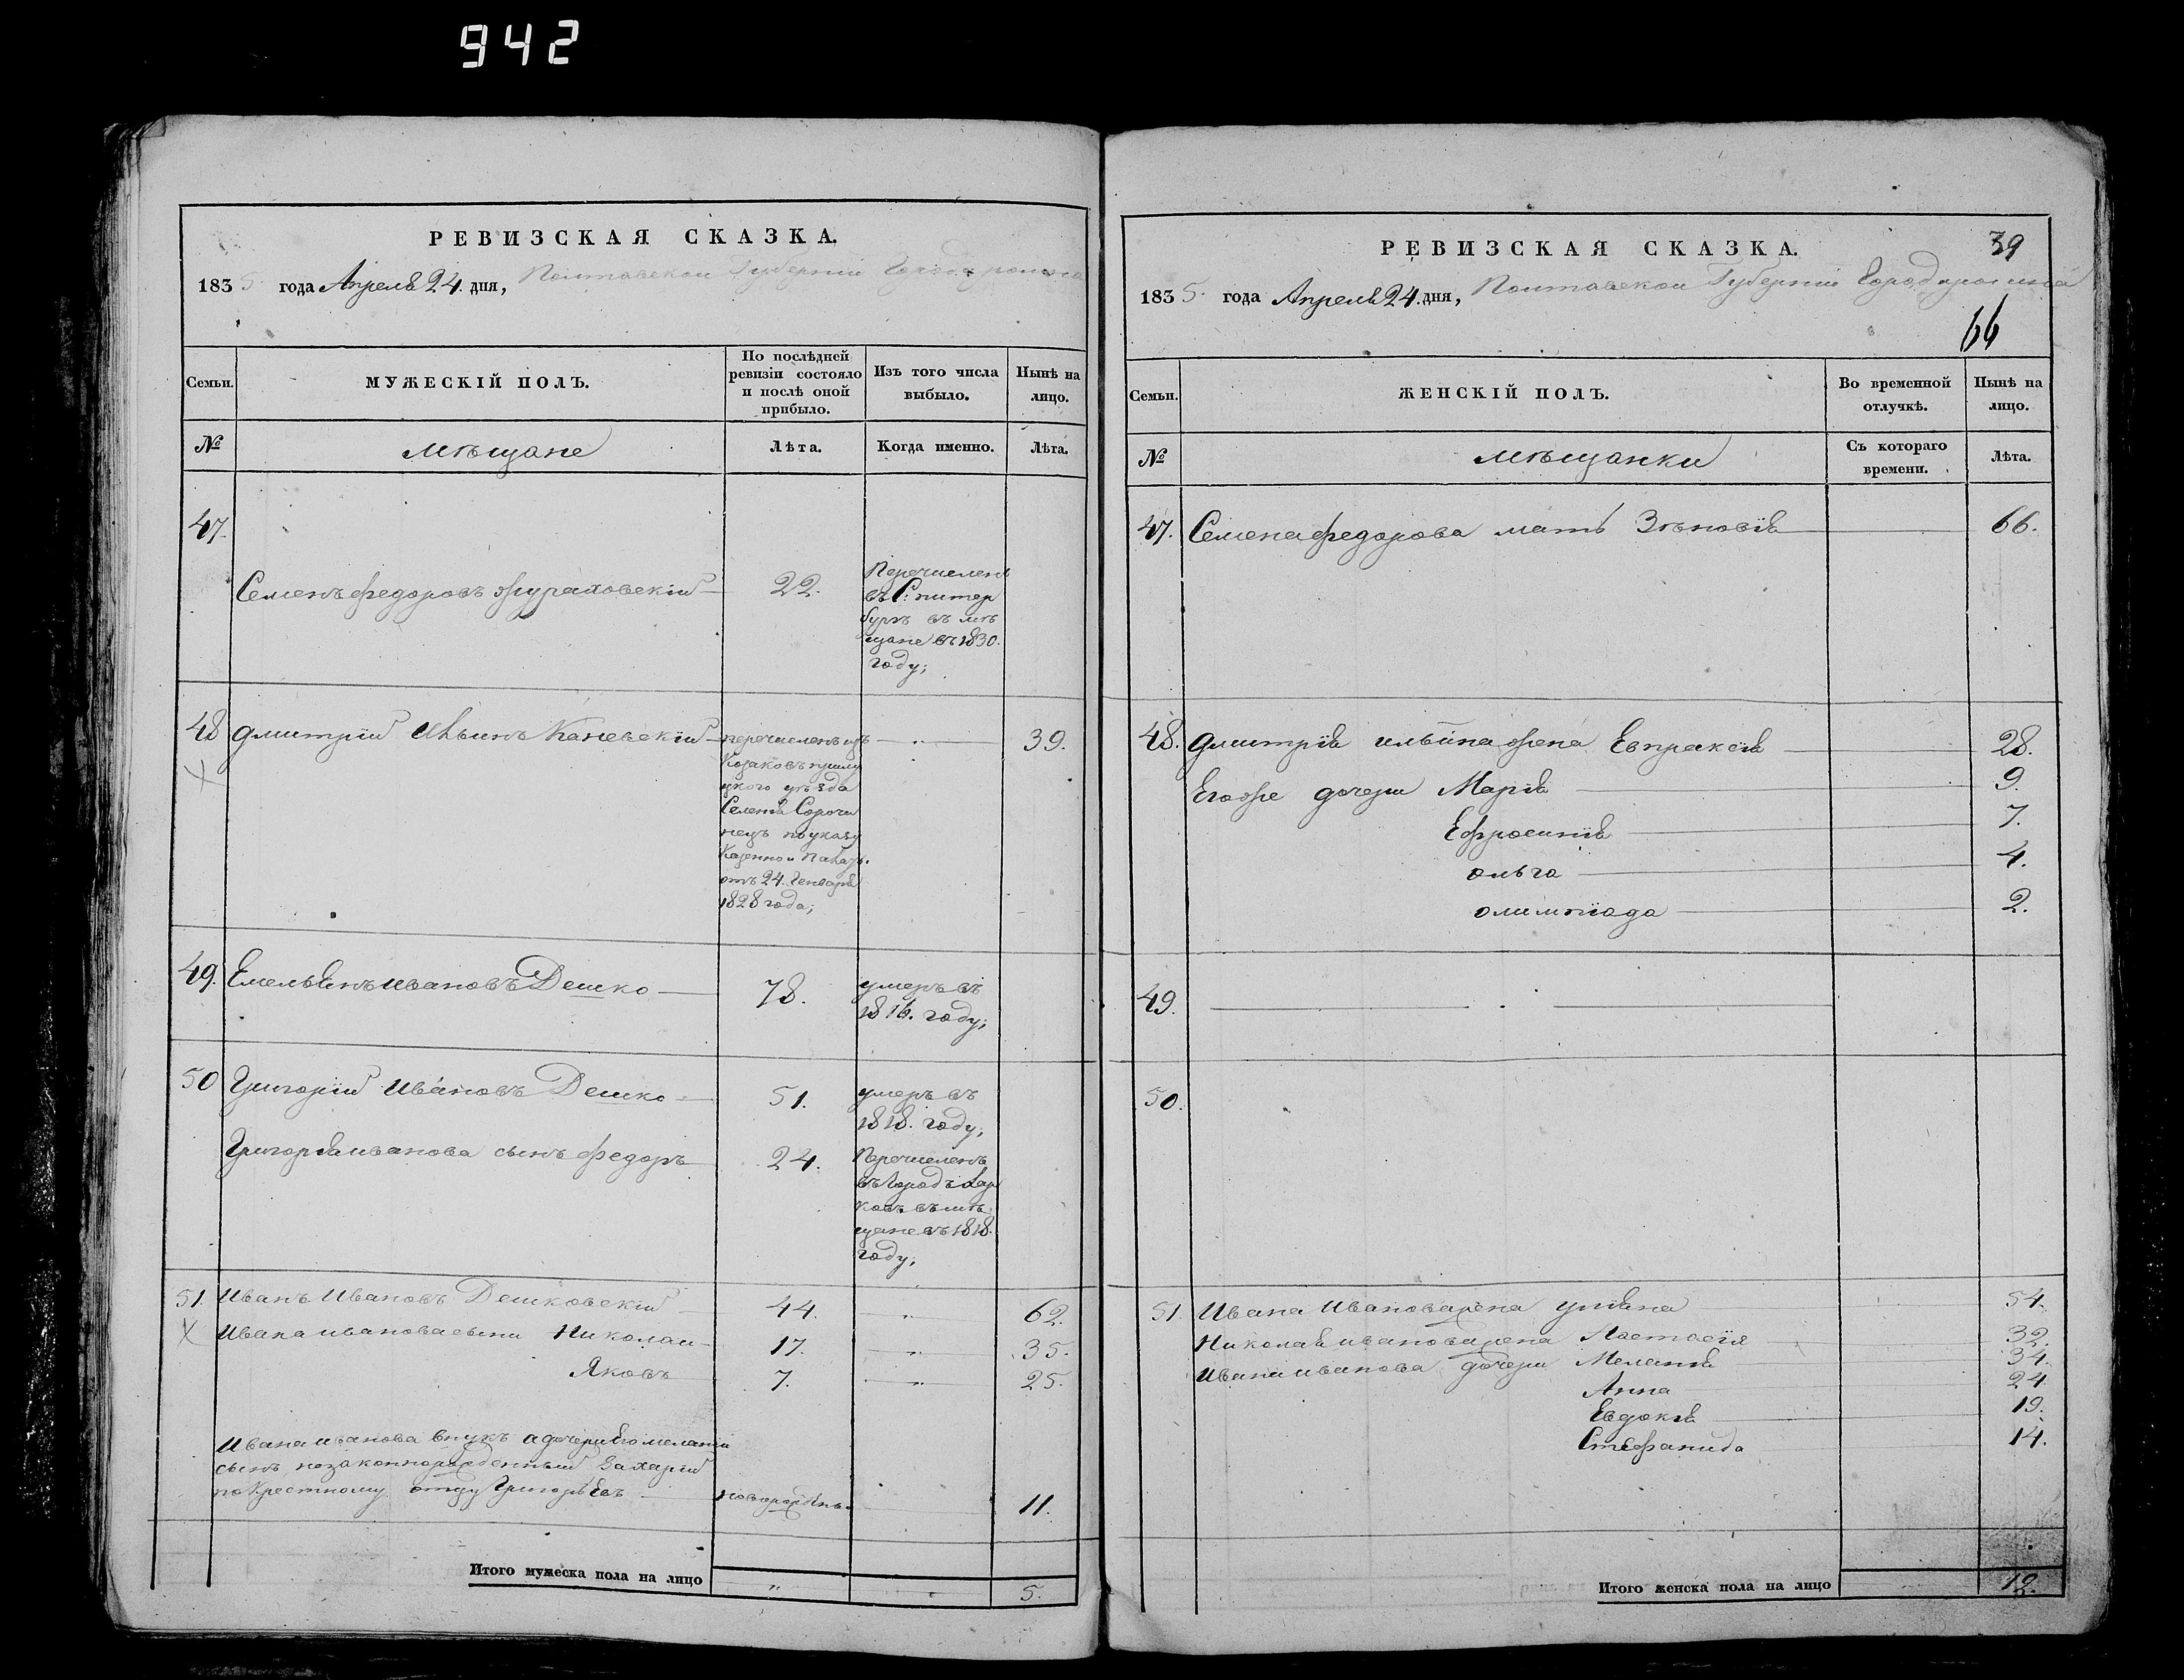 942
РЕВИЗСКАЯ СКАЗКА.
1835 года Апреля 24. дня, Полтавской Губернии Города
Семьи.
МУЖЕСКІЙ ПОЛЪ.
По послѣдней ревизіи состояло и послѣ оной прибыло.
Изъ того числа выбыло.
Нынѣ на лицо.
№
мѣщане
Лѣта.
Когда именно.
Лѣта.
47.
Семенъ Федоровъ 22.
Перечисленъ
въ С: питер
бургъ въ мѣ
щане въ 1830.
году;
48 Дмитрій Ильинъ Каневскій 39.
перечисленъ изъ
Козаковъ прилу
цкого уѣзда
Селенія Сорочи
нецъ по указу
Казенной Палаты.
отъ 24. Генваря
1828 года;
49. Емельянъ Ивановъ Дешко 78. умеръ въ
1816. году;
50 Григорій Ивановъ Дешко 51. умеръ въ
1818. году;
Григорья иванова сынъ Федоръ 24. Перечисленъ
въ Городъ Хар
ковъ въ мѣ
щане въ 1818.
году;
51. Иванъ Ивановъ Дешковскій 44. " 62.
Ивана иванова сыни Николай 17. " 35.
Яковъ 7. " 25.
Ивана иванова внукъ а дочери Его меланіи
сынъ незаконнорожденный Захарій
по Крестному отцу Григорьевъ новорожденъ. 11.
Итого мужеска пола на лицо " " 5.
39
РЕВИЗСКАЯ СКАЗКА.
1835. года Апреля 24. дня, Полтавской Губерніи Города
66
Семьи.
ЖЕНСКІЙ ПОЛЪ.
Во временной отлучкѣ.
Нынѣ на лицо.
№
мѣщанки
Съ котораго времени.
Лѣта.
47. Семена Федорова мать Зѣновія 66.
48. Дмитрія ильина жена Евпраксія 28.
Егоже дочери Марія 9.
Ефросинія 7.
Ольга 4.
олимпіада 2.
49.
50.
51. Ивана Иванова жена уліяна 54.
Николая иванова жена Настасія 32.
Ивана иванова дочери Меланія 34.
Анна 24
Евдокія 19.
Стефанида 14.
Итого женска пола на лицо 12.